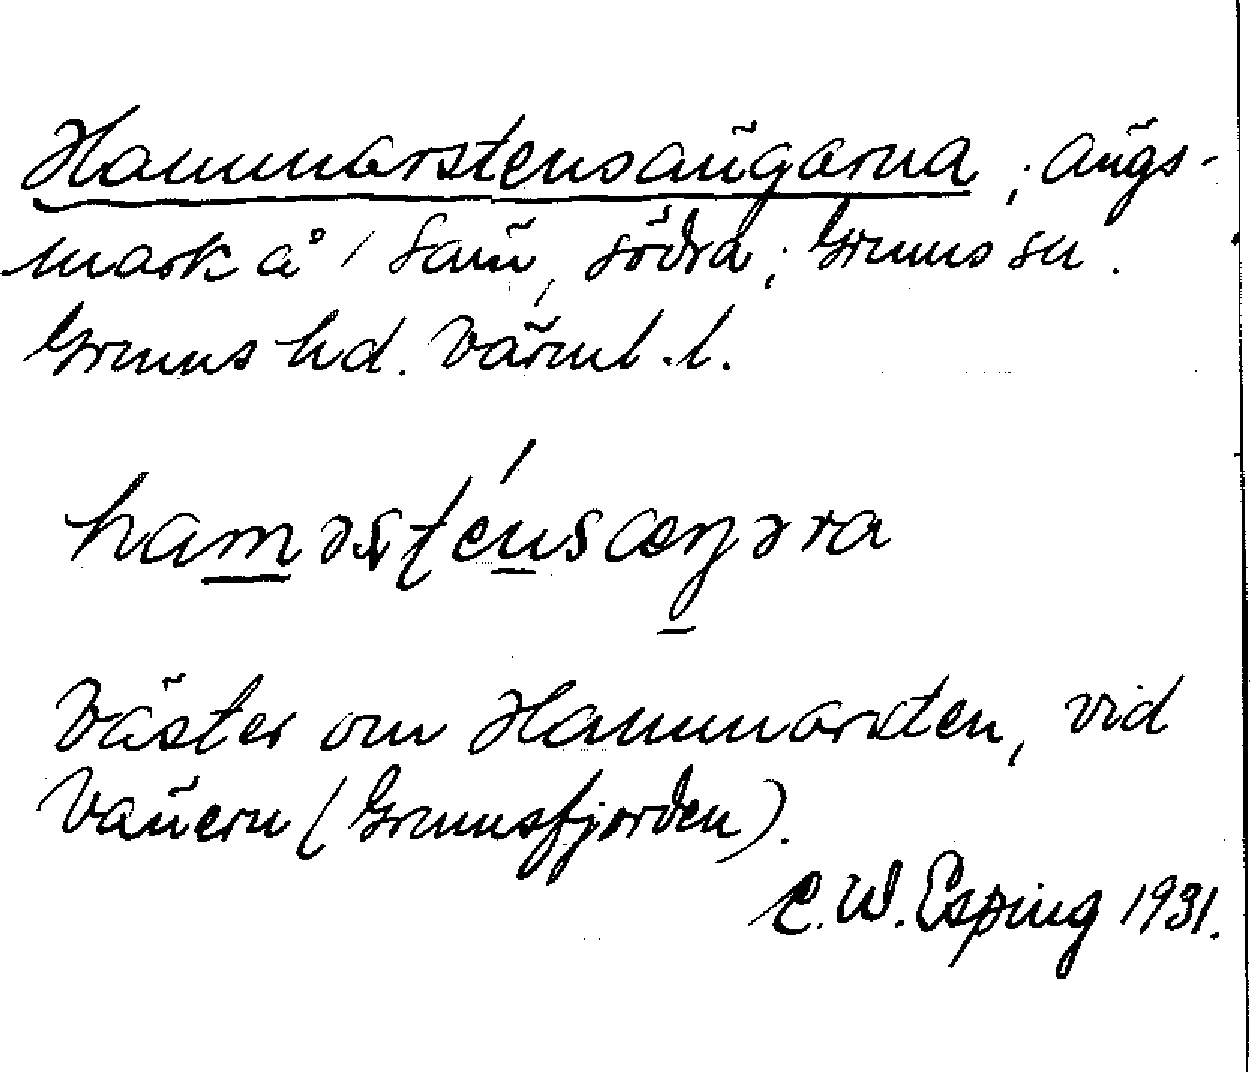 Hammarstensängarna ; ängs-
mark å 1 Sam, södra ; Grums sn.
Grums hd. Värml. l.
haməsténsæŋəra
Väster om Hammarsten, vid
Vänern (Grumsfjorden).
C. W. Esping 1931.